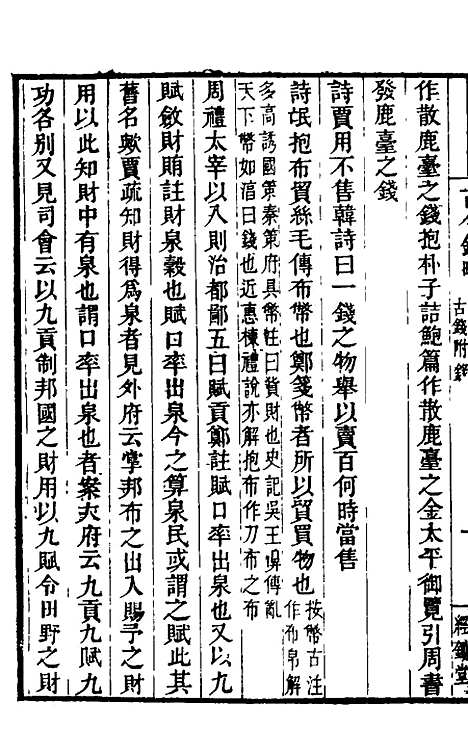 作散鹿臺之錢抱朴子詰鮑篇作散鹿臺之金太平御覽引周書
發鹿臺之錢
詩賈用不售韓詩曰一錢之物舉以賣百何時當售
詩氓抱布貿絲毛傳布幣也鄭箋幣者所以貿買物也按幣古注作布帛解
多高誘國策秦策府具幣注曰貨財也史記吳王濞傳亂
天下幣如滛曰錢也近惠棟禮說亦解抱布作刀布之布
周禮太宰以八則治都鄙五曰賦貢鄭註賦口率出泉也又以九
賦斂財賄註財泉穀也賦口率出泉今之算泉民或謂之賦此其
舊名歟賈疏知財得爲泉者見外府云掌邦布之出入賜予之財
用以此知財中有泉也謂口率出泉也者案大府云九貢九賦九
功各別又見司會云以九貢制邦國之財用以九賦令田野之財
古錢附錄